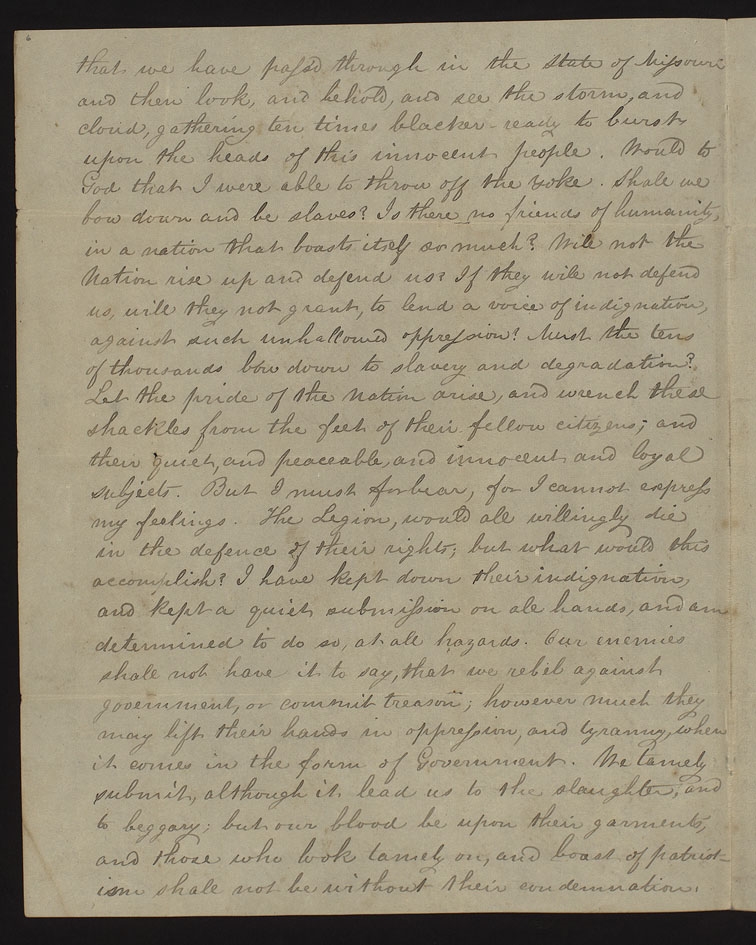 that we have pass'd through in the state of Missouri
and then look, and behold, and see the storm, and
cloud, gathering ten times blacker - ready to burst
upon the heads of this innocent people. Would to
God that I were able to throw off the yoke. Shall we
bow down and be slaves? Is there no friends of humanity,
in a nation that boasts itself so much? Will not the
Nation rise up and defend us? If they will not defend
us, will they not grant, to lend a voice of indignation,
against such unhallowed oppression? Must the tens
of thousands bow down to slavery and degradation?
Let the pride of the nation arise, and wrench these
shackles from the feet of their fellow citizens; and
their quiet, and peaceable, and innocent and loyal
subjects. But I must forbear, for I cannot express
my feelings. The Legion, would all willingly die
in the defence of their rights; but what would this
accomplish? I have kept down their indignation,
and kept a quiet submission on all hands, and am
determined to do so, at all hazards. Our enemies
shall not have it to say, that we rebel against
government, or commit treason; however much they
may lift their hands in oppression, and tyranny, when
it comes in the form of Government. We tamely
submit, although it lead us to the slaughter, and
to beggary; but our blood be upon their garments,
and those who look tamely on, and boast of patriot-
ism shall not be without their condemnation.